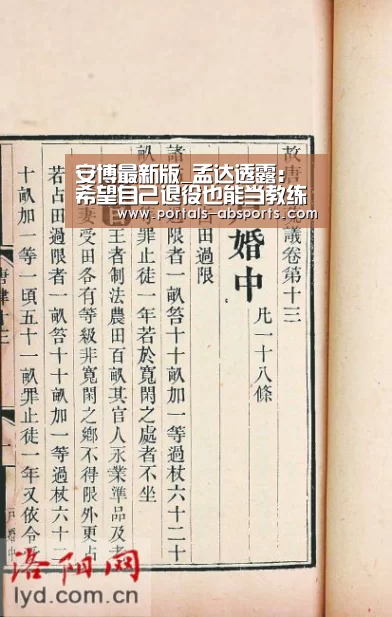 安博最新版 孟达透露：
希望自己退役也能当教练
www.portals-absports.com
故唐議卷第十三
婚中 凡一十八條
田過限
諸過限者一畝笞十十畝加一等過杖六十二十
畝罪止徒一年若於寬閑之處者不坐
王者制法農田百畝其官人永業準品及老
妻受田各有等級非寬閑之鄉不得限外更占
若占田過限者一畝笞十十畝加一等過杖六十二
十畝加一等一頃五十一畝罪止徒一年又依令
唐律十三
一
戶婚中
洛阳网
lyd.com.cn